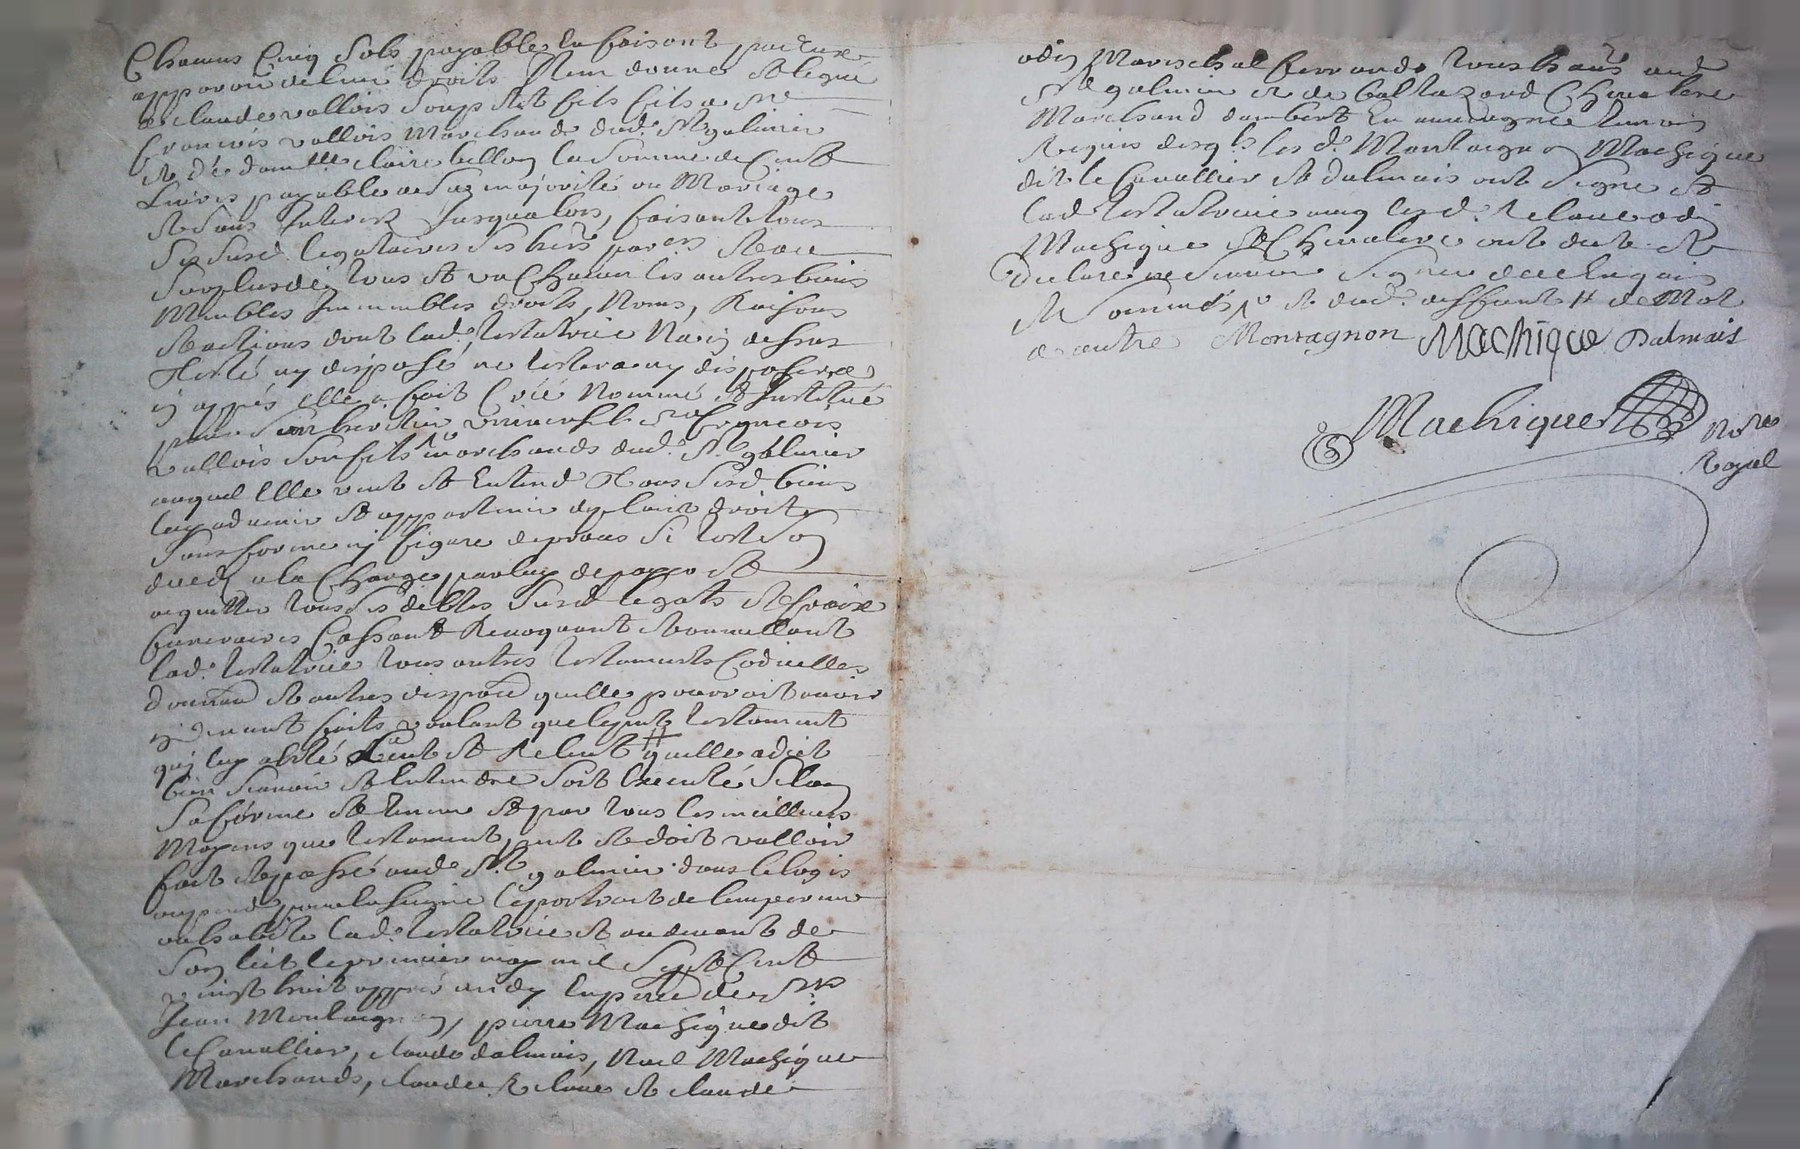 Chacuns Cinq Sols payable la faisant par eux
apparoir de leurs droits Item donne et legue
a claude vallois Son petit fils fils a sr
francois vallois Marchand dud. St galmier
et de dam.lle claire bellon la Somme de Cent
Livres payable a Sa majorité ou Mariage
et Sans Interest Jusqualors, faisant tous
Ses susd. legataires Ses hers par et au
Surplus de tous et un Chacun les autres biens
Meubles Immeubles droits, Noms, Raisons
et actions dont lad. testatrice Na cy dessus
testé ny disposé ne testera ny disposera
cy appres elle a fait Créé Nommé et Institué
pour Son heritier universel sr francois
vallois Son fils marchand dud. St. galmier
auquel Elle veut et Entend tous Sesd biens
luy advenir et appartenir de plain droit
Sans forme ny figure de proces Si tost Son
deced a la Charge par luy de payer et
acquitter tous Ses debtes Susd legats et fraix
funeraires Cassant Revoquant et annullant
lad. testatrice tous autres testaments Codicilles
donnaon et autres dispoon quelle pourroit avoir
cy devant faits voulant que le pnt testament
quj luy a esté Leut et Releut # quelle a dict
bien Scavoir et Entendre Soit Executé Selon
Sa forme et teneur et par tous les meilleurs
Moyens que testament peut et doit valloir
fait et passé aud. St. galmier dans le logis
ou pend pour Enseigne le portrait de lempereur
ou habite lad. testatrice et au devant de
Son lict le premier may mil Sept Cent
vingt huit appres midy En pnce de Srs
Jean Montaignon, pierre Machique dit
le Cavallier, claude dalmais, Noel Machique
Marchands, claude Relave et claude
odin Marischal ferrand tous habts aud.
St. galmier et de baltazard Chevalere
Marchand dambert En auvergne temoins
Requis desqls les d. Montaignon Machique
dit le Cavallier et dalmais ont Signé et
lad testatrice avec lesd. Relave odin
Machique et Chevalere ont dict et
declaré ne Scavoir Signer de ce Enquis
et Sommés et dud. # de Mot
a autre Montagnon Machique Dalmais
Machique Nore
Royal